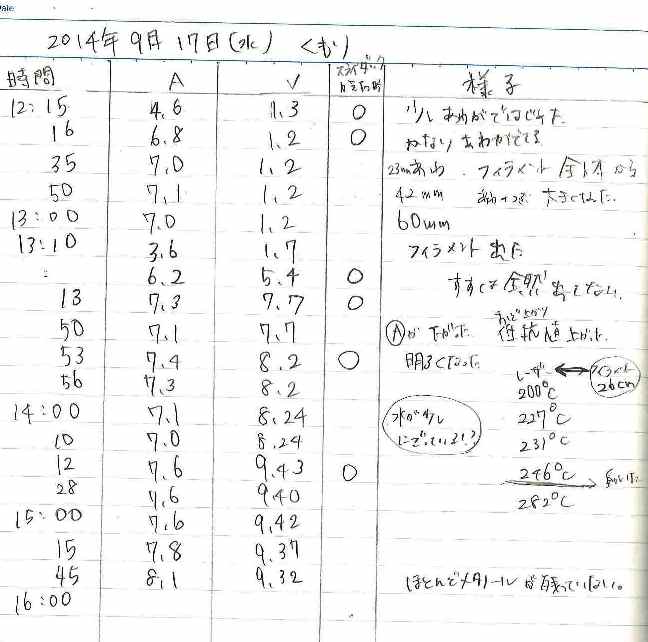 Date
2014年 9月 17日(水) くもり
時間 A V スライダック 様子
12:15 4.6 1.3 ○ 少しあわがではじめた
16 6.8 1.2 ○ かなりあわがでてる
35 7.0 1.2 23mmあわ フィラメント全体から
50 7.1 1.2 42mm 大きくなった
13:00 7.0 1.2 60mm
13:10 3.6 1.7 フィラメント
: 6.2 5.4 ○ すすくる全然出てない。
13 7.3 7.7 ○
おんど上がり
50 7.1 7.7 Ⓐが下がった 抵抗値上がった
53 7.4 8.2 ○ 明るくなった
レーザー ↔ フィラメント 26cm
56 7.3 8.2 200℃
14:00 7.1 8.24 水が少しにごっている!? 227℃
10 7.0 8.24 231℃
12 7.6 9.43 ○ 246℃
28 7.6 9.40 282℃
15:00 7.6 9.42
15 7.8 9.37
45 8.1 9.32 ほとんどメタノールが残っていない。
16:00